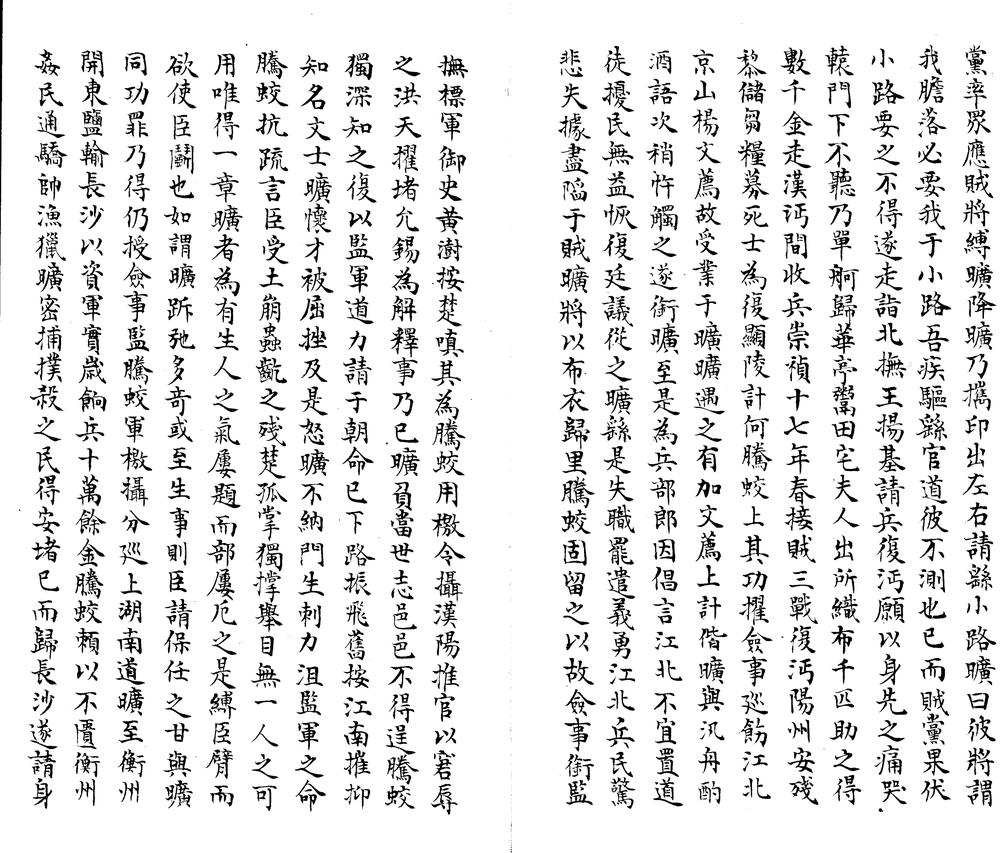 黨率眾應賊將縛曠降曠乃攜印出左右請繇小路曠曰彼將謂
我膽落必要我于小路吾疾驅繇官道彼不測也已而賊黨果伏
小路要之不得遂走詣北撫王揚基請兵復沔願以身先之痛哭
轅門下不聽乃單舸歸華亭鬻田宅夫人出所織布千匹助之得
數千金走漢沔間收兵崇禎十七年春接賊三戰復沔陽州安殘
黎儲芻糧募死士為復顯陵計何騰蛟上其功擢僉事廵飭江北
京山楊文薦故受業于曠曠遇之有加文薦上計偕曠與汎舟酌
酒語次稍忤觸之遂銜曠至是為兵部郎因倡言江北不宜置道
徒擾民無益恢復廷議從之曠繇是失職罷遣義勇江北兵民驚
悲失據盡陷于賊曠將以布衣歸里騰蛟固留之以故僉事銜監
撫標軍御史黄澍按楚嗔其為騰蛟用檄令攝漢陽推官以窘辱
之洪天擢堵允錫為解釋事乃已曠負當世志邑邑不得逞騰蛟
獨深知之復以監軍道力請于朝命已下路振飛舊按江南摧抑
知名文士曠懷才被屈挫及是怒曠不納門生刺力沮監軍之命
騰蛟抗疏言臣受土崩蟲齩之殘楚孤掌獨撐舉目無一人之可
用唯得一章曠者為有生人之氣屢題而部屢厄之是縛臣臂而
欲使臣鬭也如謂曠跅弛多奇或至生事則臣請保任之甘與曠
同功罪乃得仍授僉事監騰蛟軍檄攝分廵上湖南道曠至衡州
開東鹽輸長沙以資軍實歲餉兵十萬餘金騰蛟賴以不匱衡州
姦民通驕帥漁獵曠密捕撲殺之民得安堵已而歸長沙遂請身